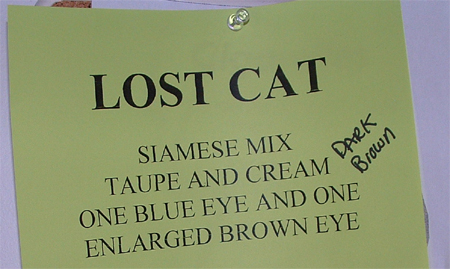 LOST CAT
SIAMESE MIX
TAUPE AND CREAM
DARK
Brown
ONE BLUE EYE AND ONE
ENLARGED BROWN EYE